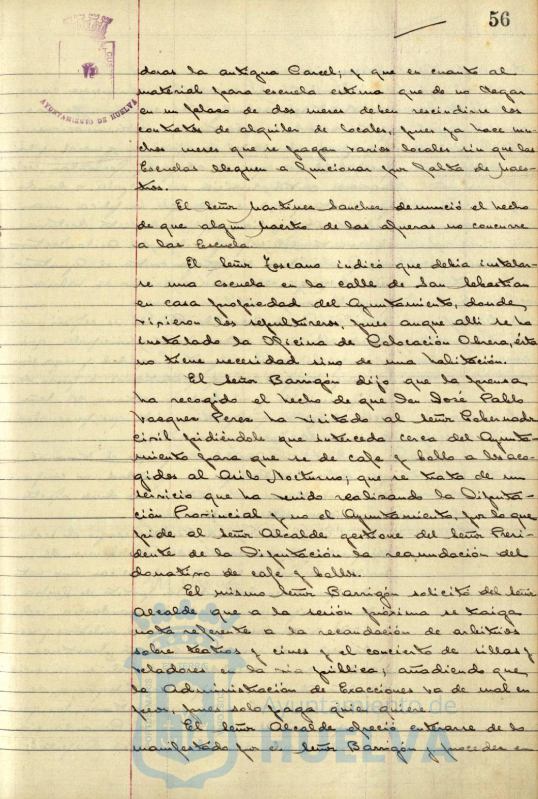 56
AYUNTAMIENTO DE HUELVA
deras la antigua Carcel; y que en cuanto al
material para escuela estima que de no llegar
en un plazo de dos meses deben rescindirse los
contratos de alquiler de locales, pues ya hace mu-
chos meses que se pagan varios locales sin que las
Escuelas lleguen a funcionar por falta de Maes-
tros.
El Señor Martinez Sanchez denunció el hecho
de que algun Maestro de las afueras no concurre
a las Escuela.
El Señor Toscano indicó que debia instalar-
se una escuela en la calle de San Sebastian
en casa propiedad del Ayuntamiento, donde
vivieron los sepultureros, pues aunque alli se ha
instalado la Oficina de Colocación Obrera, ésta
no tiene necesidad sino de una habitación.
El Señor Barrigón dijo que la prensa
ha recogido el hecho de que Don José Pablo
Vazquez Perez ha visitado al Señor Gobernador
civil pidiéndole que interceda cerca del Ayunta-
miento para que se de cafe y bollo a los aco-
gidos al Asilo Nocturno; que se trata de un
servicio que ha venido realizando la Diputa-
ción Provincial y no el Ayuntamiento, por lo que
pide al Señor Alcalde gestione del Señor Presi-
dente de la Diputación la reanudación del
donativo de cafe y bollos.
El mismo Señor Barrigón solicitó del Señor
Alcalde que a la sesión próxima se traiga
nota referente a la recaudación de arbitrios
sobre teatros y cines y el concierto de sillas y
veladores la via pública; añadiendo que
la Administración de Exacciones va de mal en
peor, pues solo paga quien quiere.
El Señor Alcalde ofreció enterarse de lo
manifestado por el Señor Barrigón y proceder en
Ayuntamiento de
HUELVA